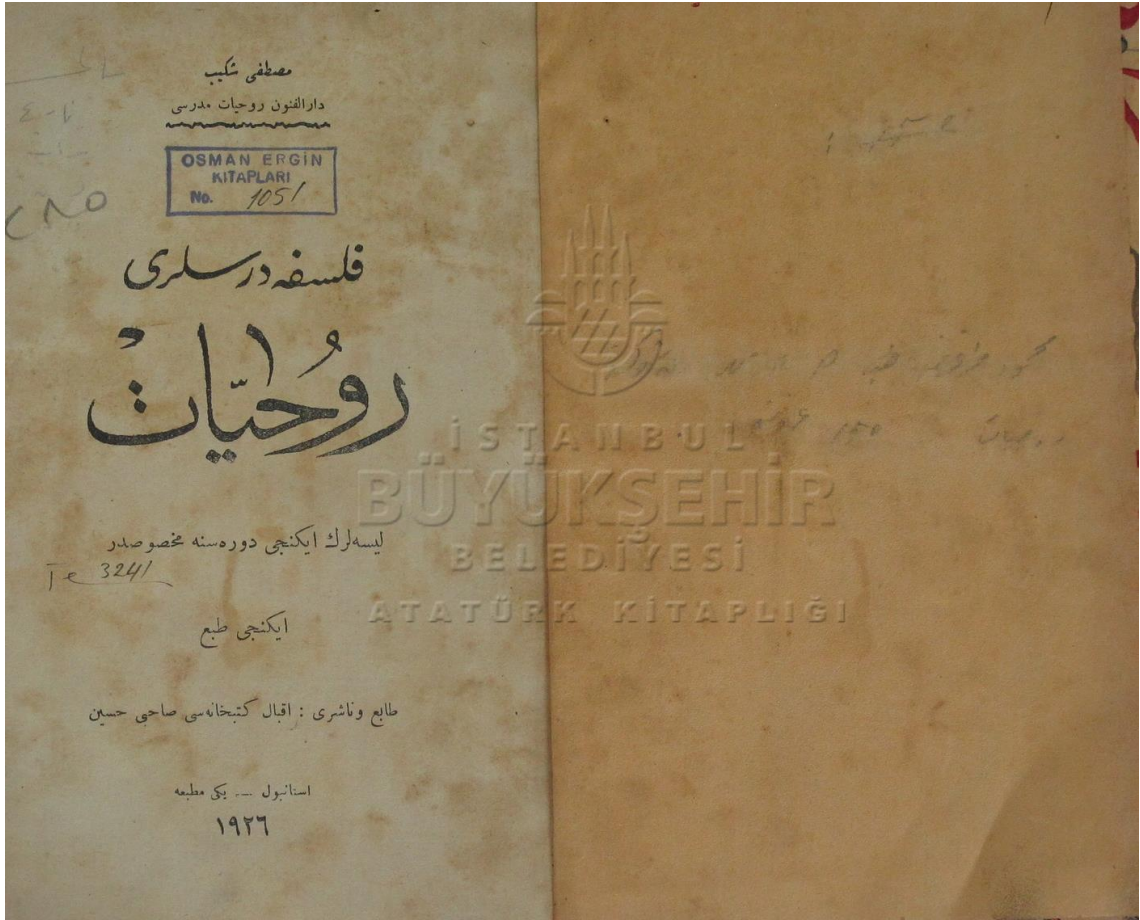 مصطفى شكيب
دارالفنون روحيات مدرسى
OSMAN ERGİN
KİTAPLARI
No. 1051
٢٨٥
فلسفه درسلرى
روُحيّات
ليسه‌لرك ايكنجى دوره‌سنه مخصوصدر
3241
ايكنجى طبع
طابع وناشرى : اقبال كتبخانه‌سى صاحبى حسين
استانبول — يكى مطبعه
١٩٢٦
İSTANBUL
BÜYÜKŞEHİR
BELEDİYESİ
ATATÜRK KİTAPLIĞI